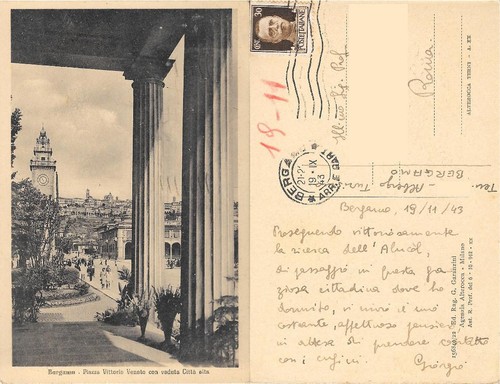 Bergamo - Piazza Vittorio Veneto con veduta Città alta
30
POSTE ITALIANE
19-11
BERGAMO
21-22
19 · IX
43
ARR. E PART.
Ill.mo Sig. Prof.
Roma
ALTEROCCA TERNI - A. XX
Ten.
- Albergo
BERGAMO
Bergamo, 19/11/43
Proseguendo vittoriosamente
la ricerca dell'Alucol,
di passaggio in questa gra-
ziosa cittadina dove ho
dormito, vi invio il mio
costante, affettuoso pensiero
in attesa di prendere contatto
con i cugini.
Giorgio
Ed. Rag. G. Carminati
Agenzia Alterocca - Milano